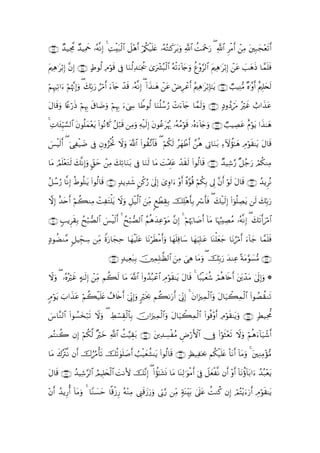 أَتَعْجَبِينَ مِنْ أَمْرِ ٱللَّهِ ۖ رَحْمَتُ ٱللَّهِ وَبَرَكَٰتُهُۥ عَلَيْكُمْ أَهْلَ ٱلْبَيْتِ ۚ إِنَّهُۥ حَمِيدٌ مَّجِيدٌ
فَلَمَّا ذَهَبَ عَنْ إِبْرَٰهِيمَ ٱلرَّوْعُ وَجَآءَتْهُ ٱلْبُشْرَىٰ يُجَٰدِلُنَا فِى قَوْمِ لُوطٍ إِنَّ إِبْرَٰهِيمَ
لَحَلِيمٌ أَوَّٰهٌ مُّنِيبٌ يَٰٓإِبْرَٰهِيمُ أَعْرِضْ عَنْ هَٰذَآ ۖ إِنَّهُۥ قَدْ جَآءَ أَمْرُ رَبِّكَ ۖ وَإِنَّهُمْ ءَاتِيهِمْ
عَذَابٌ غَيْرُ مَرْدُودٍ وَلَمَّا جَآءَتْ رُسُلُنَا لُوطًا سِىٓءَ بِهِمْ وَضَاقَ بِهِمْ ذَرْعًا وَقَالَ
هَٰذَا يَوْمٌ عَصِيبٌ وَجَآءَهُۥ قَوْمُهُۥ يُهْرَعُونَ إِلَيْهِ وَمِن قَبْلُ كَانُوا۟ يَعْمَلُونَ ٱلسَّيِّـَٔاتِ ۚ
قَالَ يَٰقَوْمِ هَٰٓؤُلَآءِ بَنَاتِى هُنَّ أَطْهَرُ لَكُمْ ۖ فَٱتَّقُوا۟ ٱللَّهَ وَلَا تُخْزُونِ فِى ضَيْفِىٓ ۖ أَلَيْسَ
مِنكُمْ رَجُلٌ رَّشِيدٌ قَالُوا۟ لَقَدْ عَلِمْتَ مَا لَنَا فِى بَنَاتِكَ مِنْ حَقٍّ وَإِنَّكَ لَتَعْلَمُ مَا
نُرِيدُ قَالَ لَوْ أَنَّ لِى بِكُمْ قُوَّةً أَوْ ءَاوِىٓ إِلَىٰ رُكْنٍ شَدِيدٍ قَالُوا۟ يَٰلُوطُ إِنَّا رُسُلُ
رَبِّكَ لَن يَصِلُوٓا۟ إِلَيْكَ ۖ فَأَسْرِ بِأَهْلِكَ بِقِطْعٍ مِّنَ ٱلَّيْلِ وَلَا يَلْتَفِتْ مِنكُمْ أَحَدٌ إِلَّا
ٱمْرَأَتَكَ ۖ إِنَّهُۥ مُصِيبُهَا مَآ أَصَابَهُمْ ۚ إِنَّ مَوْعِدَهُمُ ٱلصُّبْحُ ۚ أَلَيْسَ ٱلصُّبْحُ بِقَرِيبٍ
فَلَمَّا جَآءَ أَمْرُنَا جَعَلْنَا عَٰلِيَهَا سَافِلَهَا وَأَمْطَرْنَا عَلَيْهَا حِجَارَةً مِّن سِجِّيلٍ مَّنضُودٍ
مُّسَوَّمَةً عِندَ رَبِّكَ ۖ وَمَا هِىَ مِنَ ٱلظَّٰلِمِينَ بِبَعِيدٍ
۞ وَإِلَىٰ مَدْيَنَ أَخَاهُمْ شُعَيْبًا ۚ قَالَ يَٰقَوْمِ ٱعْبُدُوا۟ ٱللَّهَ مَا لَكُم مِّنْ إِلَٰهٍ غَيْرُهُۥ ۖ وَلَا
تَنقُصُوا۟ ٱلْمِكْيَالَ وَٱلْمِيزَانَ ۚ إِنِّىٓ أَرَىٰكُم بِخَيْرٍ وَإِنِّىٓ أَخَافُ عَلَيْكُمْ عَذَابَ يَوْمٍ
مُّحِيطٍ وَيَٰقَوْمِ أَوْفُوا۟ ٱلْمِكْيَالَ وَٱلْمِيزَانَ بِٱلْقِسْطِ ۖ وَلَا تَبْخَسُوا۟ ٱلنَّاسَ
أَشْيَآءَهُمْ وَلَا تَعْثَوْا۟ فِى ٱلْأَرْضِ مُفْسِدِينَ بَقِيَّتُ ٱللَّهِ خَيْرٌ لَّكُمْ إِن كُنتُم
مُّؤْمِنِينَ ۚ وَمَآ أَنَا۠ عَلَيْكُم بِحَفِيظٍ قَالُوا۟ يَٰشُعَيْبُ أَصَلَوٰتُكَ تَأْمُرُكَ أَن نَّتْرُكَ مَا
يَعْبُدُ ءَابَآؤُنَآ أَوْ أَن نَّفْعَلَ فِىٓ أَمْوَٰلِنَا مَا نَشَٰٓؤُا۟ ۖ إِنَّكَ لَأَنتَ ٱلْحَلِيمُ ٱلرَّشِيدُ قَالَ
يَٰقَوْمِ أَرَءَيْتُمْ إِن كُنتُ عَلَىٰ بَيِّنَةٍ مِّن رَّبِّى وَرَزَقَنِى مِنْهُ رِزْقًا حَسَنًا ۚ وَمَآ أُرِيدُ أَنْ